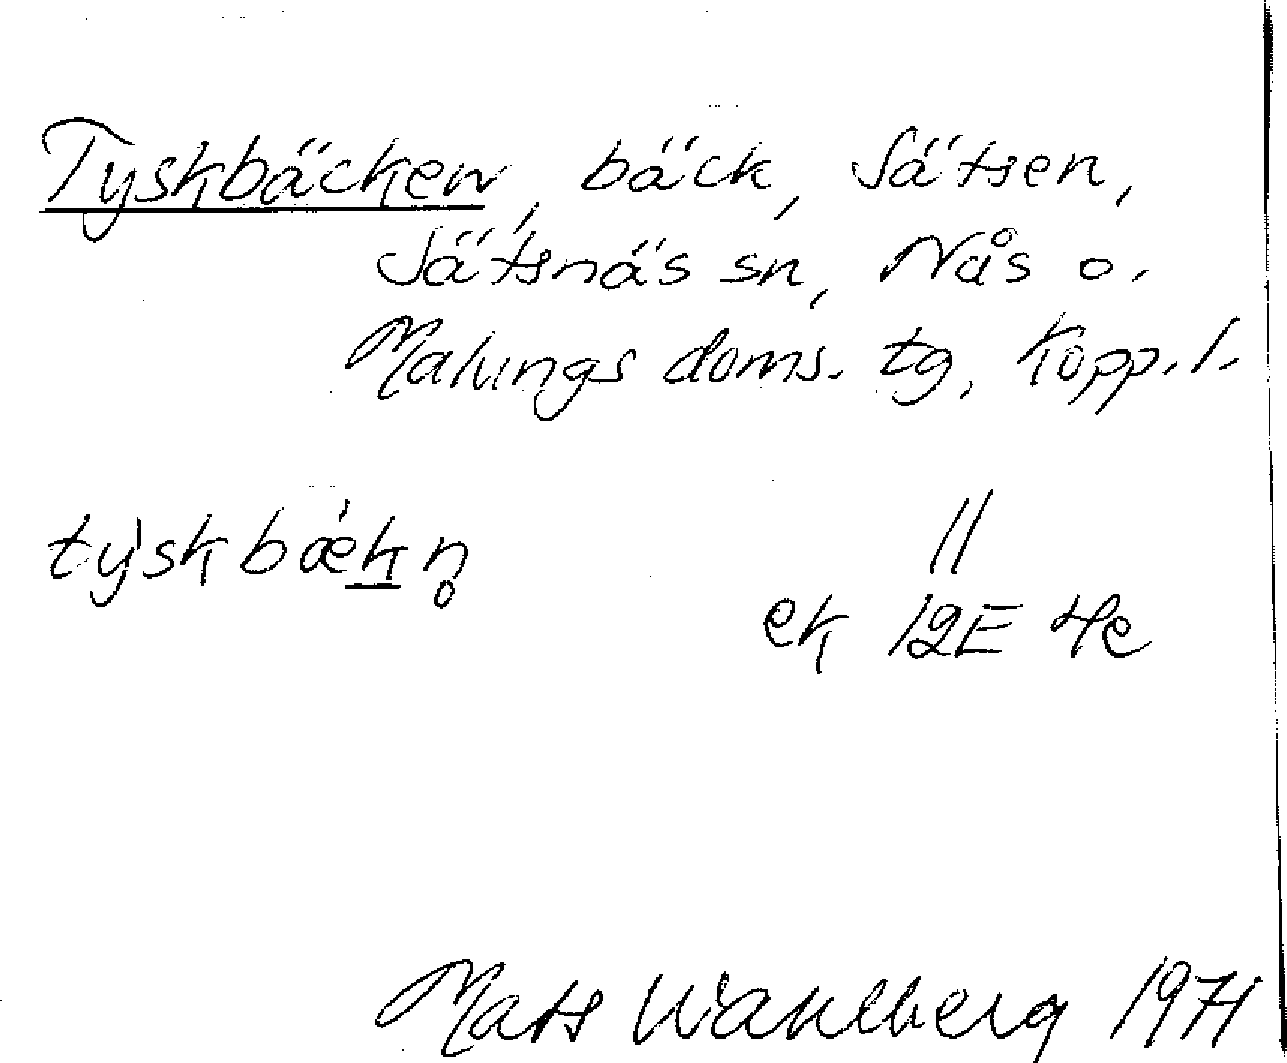 Tyskbäcken, bäck, Sätsen,
Sätsnäs sn, Nås o.
Malungs doms. tg, Kopp. l.
ty̍skbæ̍k̲n̥ //
ek 12E 4e
Mats Wahlberg 1971